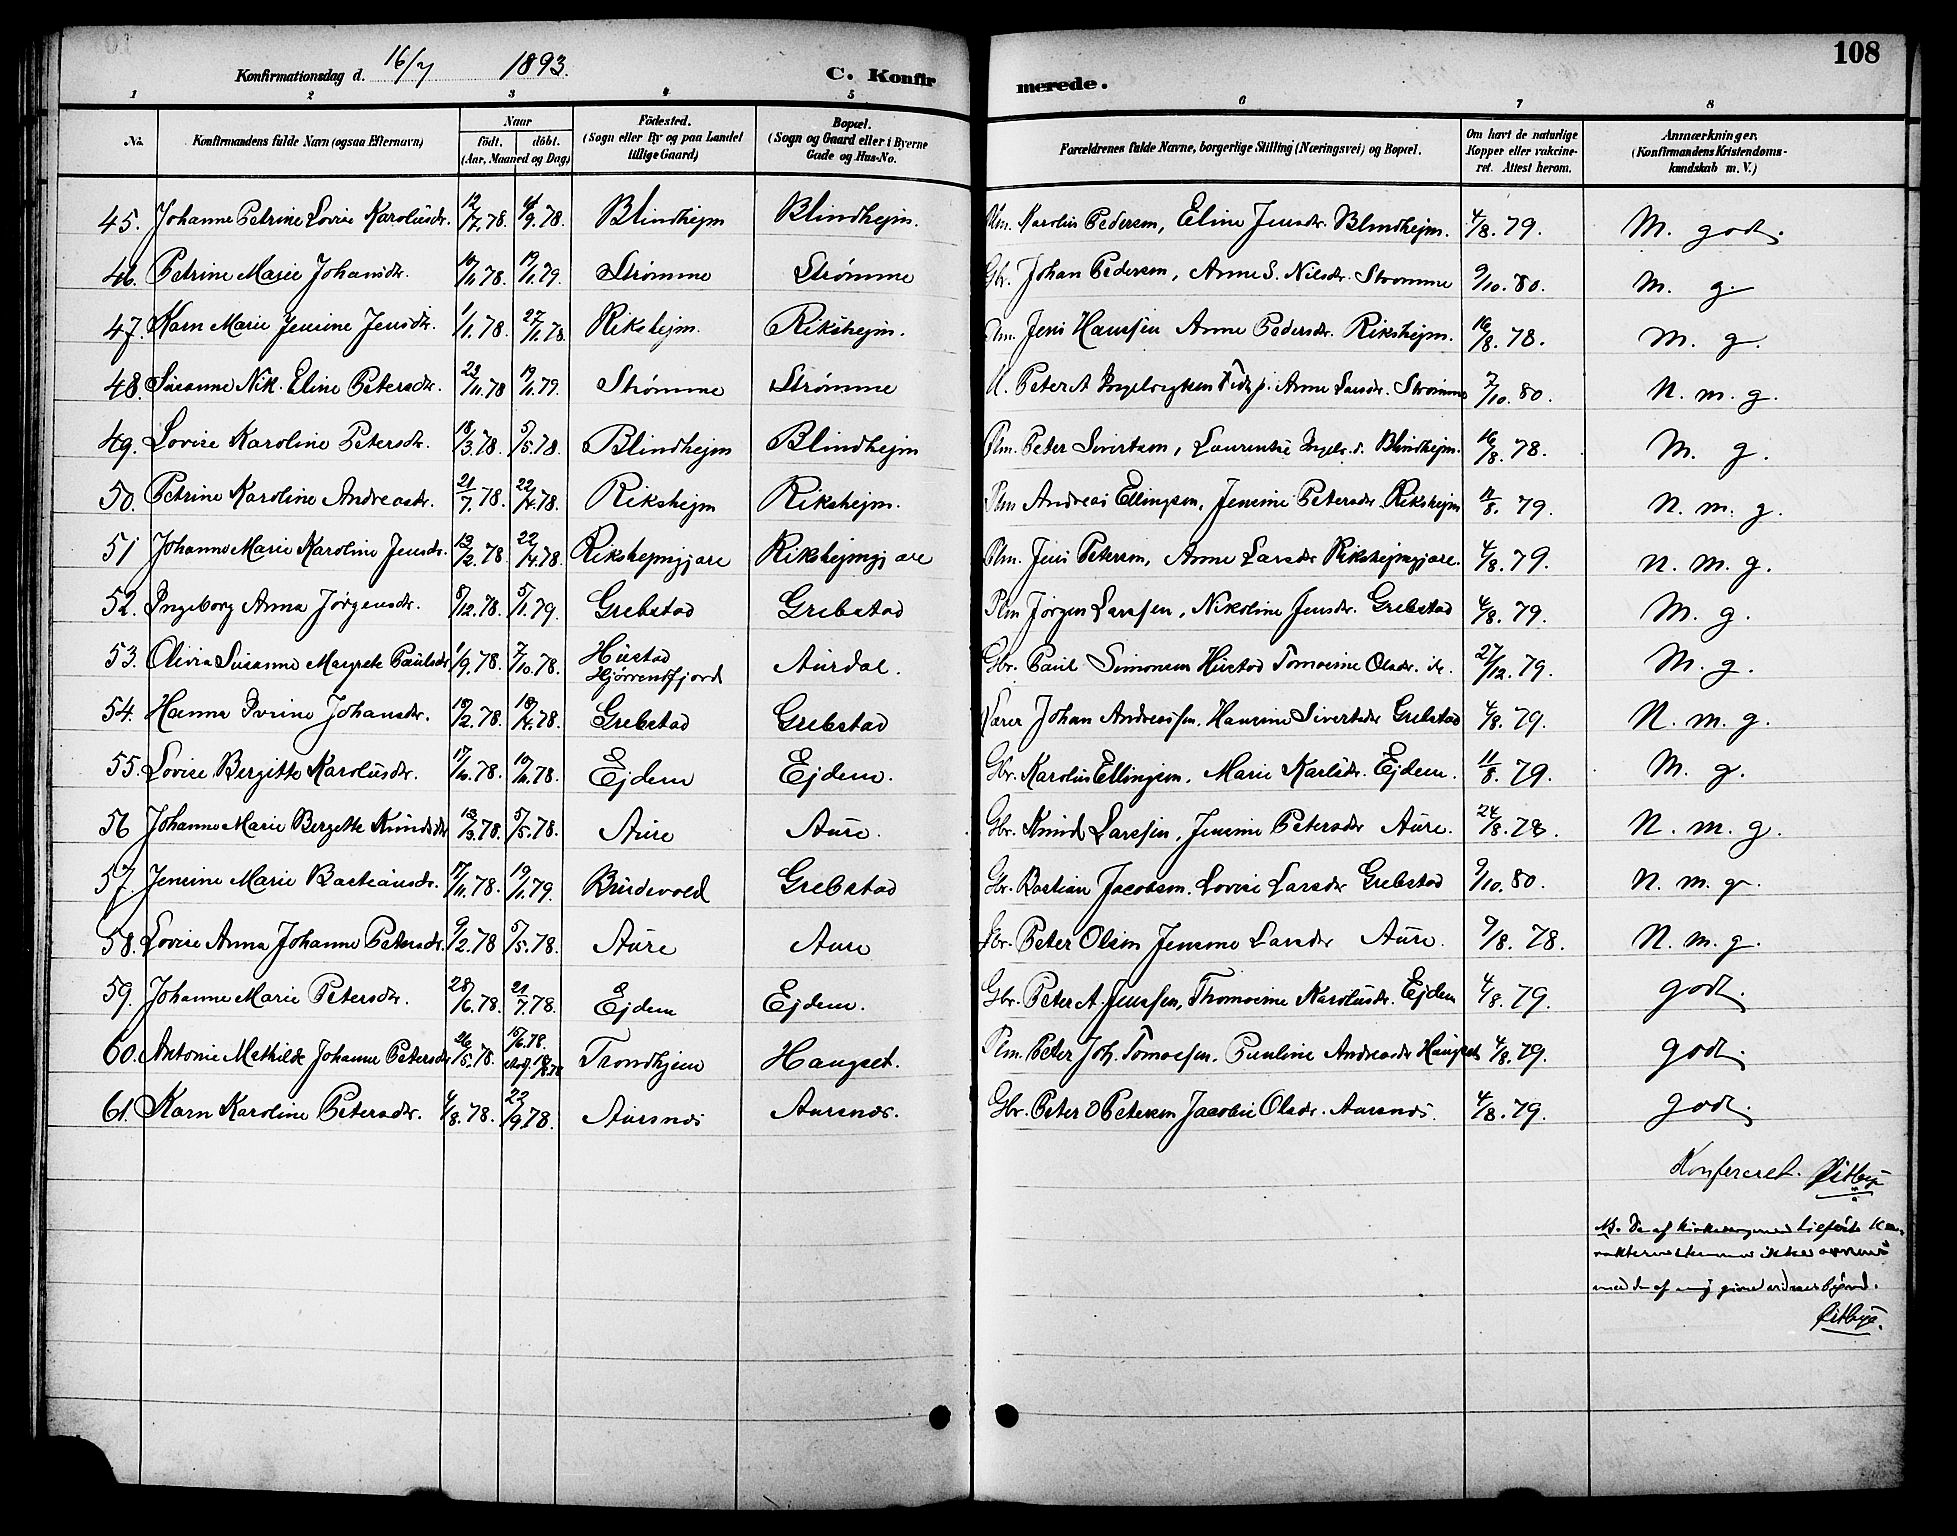 108
Konfirmationsdag d. 16/7 1893.
C. Konfirmerede.
1 2 3 4 5 6 7 8
No. Konfirmandens fulde Navn (ogsaa Efternavn) Naar födt. döbt. (Aar, Maaned og Dag) Födested. (Sogn eller By og paa Landet tillige Gaard) Bopæl. (Sogn og Gaard eller i Byerne Gade og Hus-No. Forældrenes fulde Navne, borgerlige Stilling (Næringsvei) og Bopæl. Om havt de naturlige Kopper eller vakcineret. Attest herom. Anmærkninger. (Konfirmandens Kristendomskundskab m. V.)
45. Johanne Petrine Lovise Karolusdr. 12/7.78. /9.78. Blindhejm Blindhejm. Plm. Karolus Pederson, Eline Jensdr. Blindhejm. 4/8.79. M. godt.
46. Petrine Marie Johansdr. /11.78. 19/1.79. Strømme Strømme Gbr. Johan Pederson, Anne S. Nilsdr. Strømme 9/10.80. M. g.
47. Karn Marie Jensine Jensdr. 1/11.78. 27/11.78. Rikshejm. Rikshejm. Plm. Jens Hanssen Anne Pedersdr. Rikshejm. 16/8.78. M. g.
48. Susanne Nik. Eline Petersdr. 23/11.78 19/1.79. Strømme Strømme Peter A Anne Larsdr. Strømme /10.80. N. m. g.
49. Lovise Karoline Petersdr. 18/3.78. 5/5.78. Blindhejm Blindhejm Plm. Peter Sivertson, Laurentse Blindhejm. 16/8.78. M. g.
50. Petrine Karoline Andreasdr. 21/7.78. 22/4.78. Rikshejm Rikshejm. Plm Andreas Ellingson, Jensine Petersdr. Rikshejm 11/8.79. N. m. g.
51 Johanne Marie Karoline Jensdr. 13/2.78 22/4.78. Rikshejmgjære Rikshejmgjære Plm. Jens Peterson, Anne Larsdr Rikshejmgjære. 4/8.79. N. m. g.
52. Ingeborg Anna Jørgensdr. 8/12.78. 5/1.79. Grebstad Grebstad Plm Jørgen Larssen, Nikoline Jensdr. Grebstad 4/8.79. M. g.
53. Olivia Susanne Margrete Paulsdr 1/9.78. 7/10.78. Hustad Hjörrendfjord Aurdal. Gbr. Paul Simonsen Hustad Tomasine Olsdr. 27/12.79. M. g.
54. Hanna Ivrine Johansdr. /2.78. /4.78. Grebstad Grebstad Johan Andreassen. Hansine Sivertsdr Grebstad 4/8.79. N. m. g.
55. Lovise Bergitte Karolusdr. 17/11.78. 78. Ejdem Ejdem. Gbr. Karolus Ellingson. Marie Karlsdr. Ejdem. 11/8.79. M. g.
56 Johanne Marie Bergette Knudsdr 13/3.78. 5/5.78. Aure Aure. Gbr. Knud Larssen, Jensine Petersdr Aure. 24/8.78. N. m. g.
57. Jensine Marie Bastiansdr. 17/11.78. 19/1.79. Burdevold Grebstad Gbr. Bastian Jacobson. Lovise Larsdr Grebstad 9/10.80. N. m. g.
58. Lovise Anna Johanne Petersdr. 9/2.78 5/5.78. Aure Aure Gbr. Peter Olsen Jensine Larsdr Aure. 9/8.78. N. m. g.
59. Johanne Marie Petersdr. 28/6.78. 21/7.78. Ejdem Ejdem. Gbr. Peter A. Jenssen, Thomasine Karolusdr. Ejdem 4/8.79. godt.
60. Antonie Mathilde Johanne Petersdr 26/5.78. /6.78. Trondhjem Haugset. Plm. Peter Joh. Tomassen. Pauline Andreasdr Haugset 4/8.79. godt.
61. Karn Karoline Petersdr. 4/8.78. 22/9.78. Aursnes Aursnes. Gbr. Peter O Peterson Jacobie Olsdr. Aursnes. 4/8.79. godt.
Konfereret.
NB. De af Kirkesangeren tilførte Karakterer stemmer ikke overens
med de af mig givne